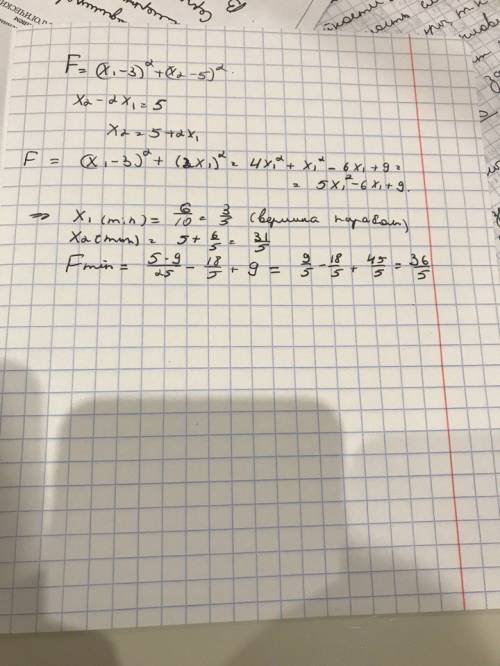 F = (x₁-3)² + (x₂-5)².
x₂ - 2x₁ = 5
x₂ = 5+2x₁
F = (x₁-3)² + (2x₁)² = 4x₁² + x₁² - 6x₁ + 9 =
= 5x₁² - 6x₁ + 9.
=> x₁(min) = 6/10 = 3/5 (вершина параболы)
x₂(min) = 5 + 6/5 = 31/5
Fmin = 5·9/25 - 18/5 + 9 = 9/5 - 18/5 + 45/5 = 36/5